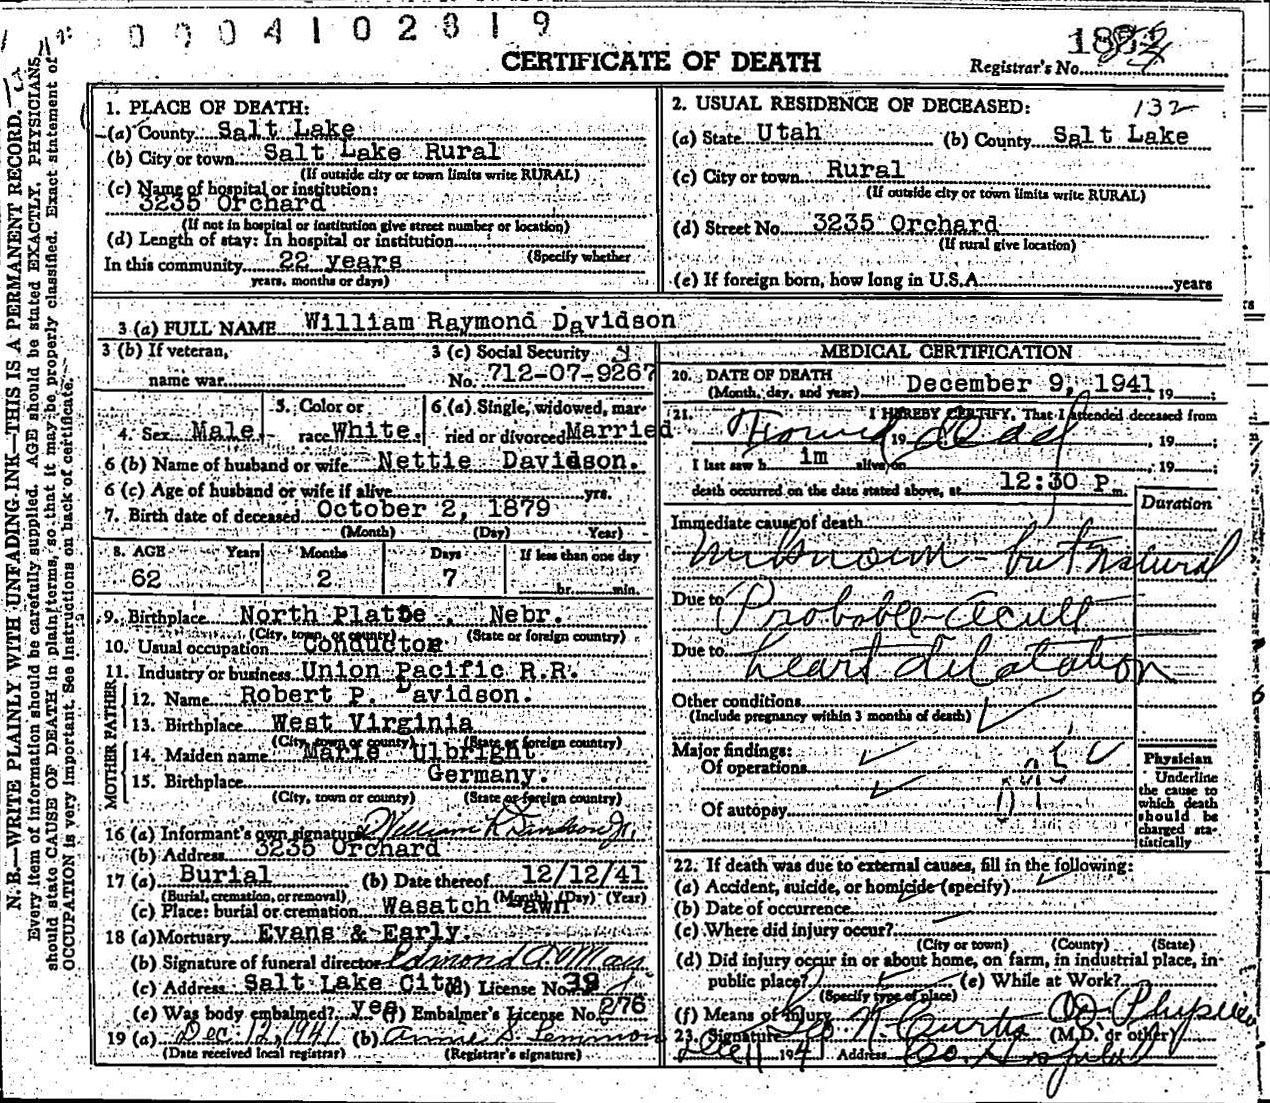 0004102819
CERTIFICATE OF DEATH
Registrar's No.
1. PLACE OF DEATH:
(a) County Salt Lake
(b) City or town Salt Lake Rural
(If outside city or town limits write RURAL)
(c) Name of hospital or institution:
3235 Orchard
(If not in hospital or institution give street number or location)
(d) Length of stay: In hospital or institution
(Specify whether
In this community 22 years
years, months or days)
2. USUAL RESIDENCE OF DECEASED: 132
(a) State Utah (b) County Salt Lake
(c) City or town Rural
(If outside city or town limits write RURAL)
(d) Street No. 3235 Orchard
(If rural give location)
(e) If foreign born, how long in U.S.A. years
3 (a) FULL NAME William Raymond Davidson
3 (b) If veteran,
name war
3 (c) Social Security
No. 712-07-9267
4. Sex Male
5. Color or
race White
6 (a) Single, widowed, mar-
ried or divorced Married
6 (b) Name of husband or wife Nettie Davidson.
6 (c) Age of husband or wife if alive yrs.
7. Birth date of deceased October 2, 1879
(Month) (Day) Year)
8. AGE Years Months Days If less than one day
62 2 7 hr. min.
9. Birthplace North Platte, Nebr.
(City, town, or county) (State or foreign country)
10. Usual occupation Conductor
11. Industry or business Union Pacific R.R.
FATHER
12. Name Robert P. Davidson.
13. Birthplace West Virginia
(City, town or county) (State or foreign country)
MOTHER
14. Maiden name Marie Ulbright
15. Birthplace Germany.
(City, town or county) (State or foreign country)
16 (a) Informant's own signature William R Davidson Jr.
(b) Address 3235 Orchard
17 (a) Burial (b) Date thereof 12/12/41
(Burial, cremation, or removal) (Month) (Day) (Year)
(c) Place: burial or cremation Wasatch Lawn
18 (a) Mortuary Evans & Early.
(b) Signature of funeral director Edmond
(c) Address Salt Lake City (d) License No. 39
(e) Was body embalmed? yes (f) Embalmer's License No. 276
19 (a) Dec. 12, 1941 (b) Annie S Lemmon
(Date received local registrar) (Registrar's signature)
MEDICAL CERTIFICATION
20. DATE OF DEATH
(Month, day, and year) December 9, 1941, 19
21. I HEREBY CERTIFY, That I attended deceased from
Found dead
19 , 19 ;
I last saw h im alive on , 19 ;
death occurred on the date stated above, at 12:30 P m.
Duration
Immediate cause of death
Unknown - but natural
Due to Probable Acute
Due to heart dilatation
Other conditions
(Include pregnancy within 3 months of death)
Major findings:
Of operations
Of autopsy
Physician
Underline
the cause to
which death
should be
charged sta-
tistically
22. If death was due to external causes, fill in the following:
(a) Accident, suicide, or homicide (specify)
(b) Date of occurrence
(c) Where did injury occur?
(City or town) (County) (State)
(d) Did injury occur in or about home, on farm, in industrial place, in
public place? (e) While at Work?
(Specify type of place)
(f) Means of Injury
23. Signature Geo N Curtis Co Physician (M.D. or other)
Dec 11 1941 Address Co. Hospital
N. B.—WRITE PLAINLY WITH UNFADING INK—THIS IS A PERMANENT RECORD.
Every item of information should be carefully supplied. AGE should be stated EXACTLY. PHYSICIANS
should state CAUSE OF DEATH in plain terms, so that it may be properly classified. Exact statement of
OCCUPATION is very important. See instructions on back of certificate.